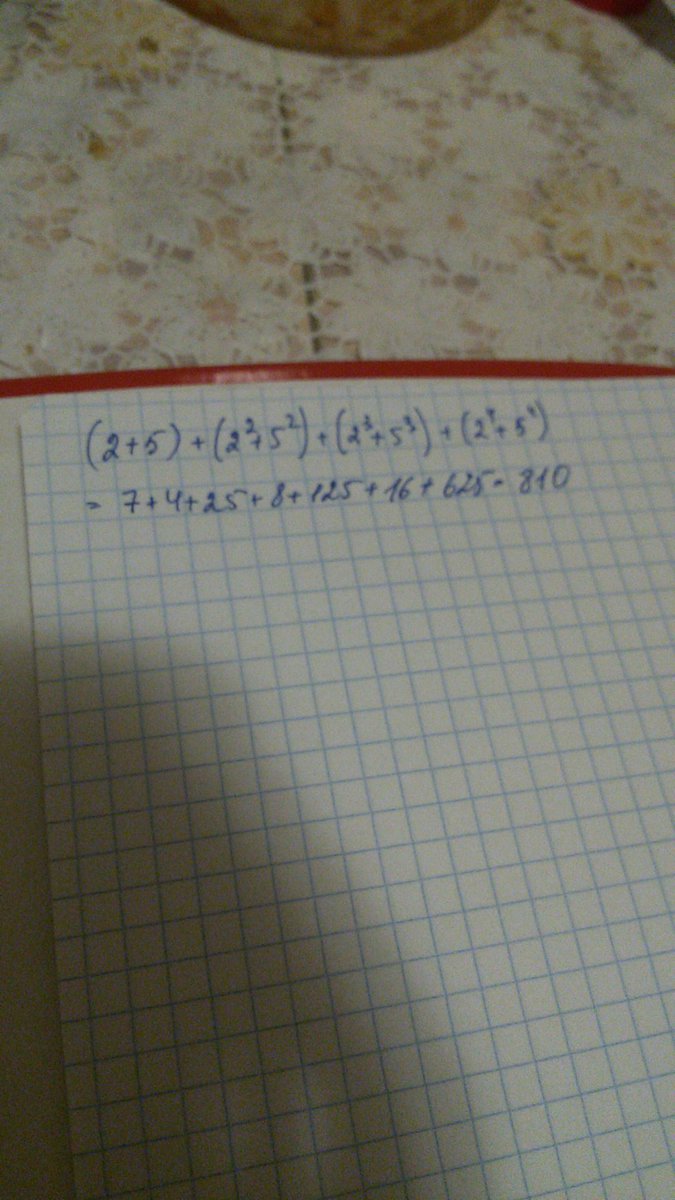 (2+5)+(2²+5²)+(2³+5³)+(2⁴+5⁴)
= 7+4+25+8+125+16+625= 810